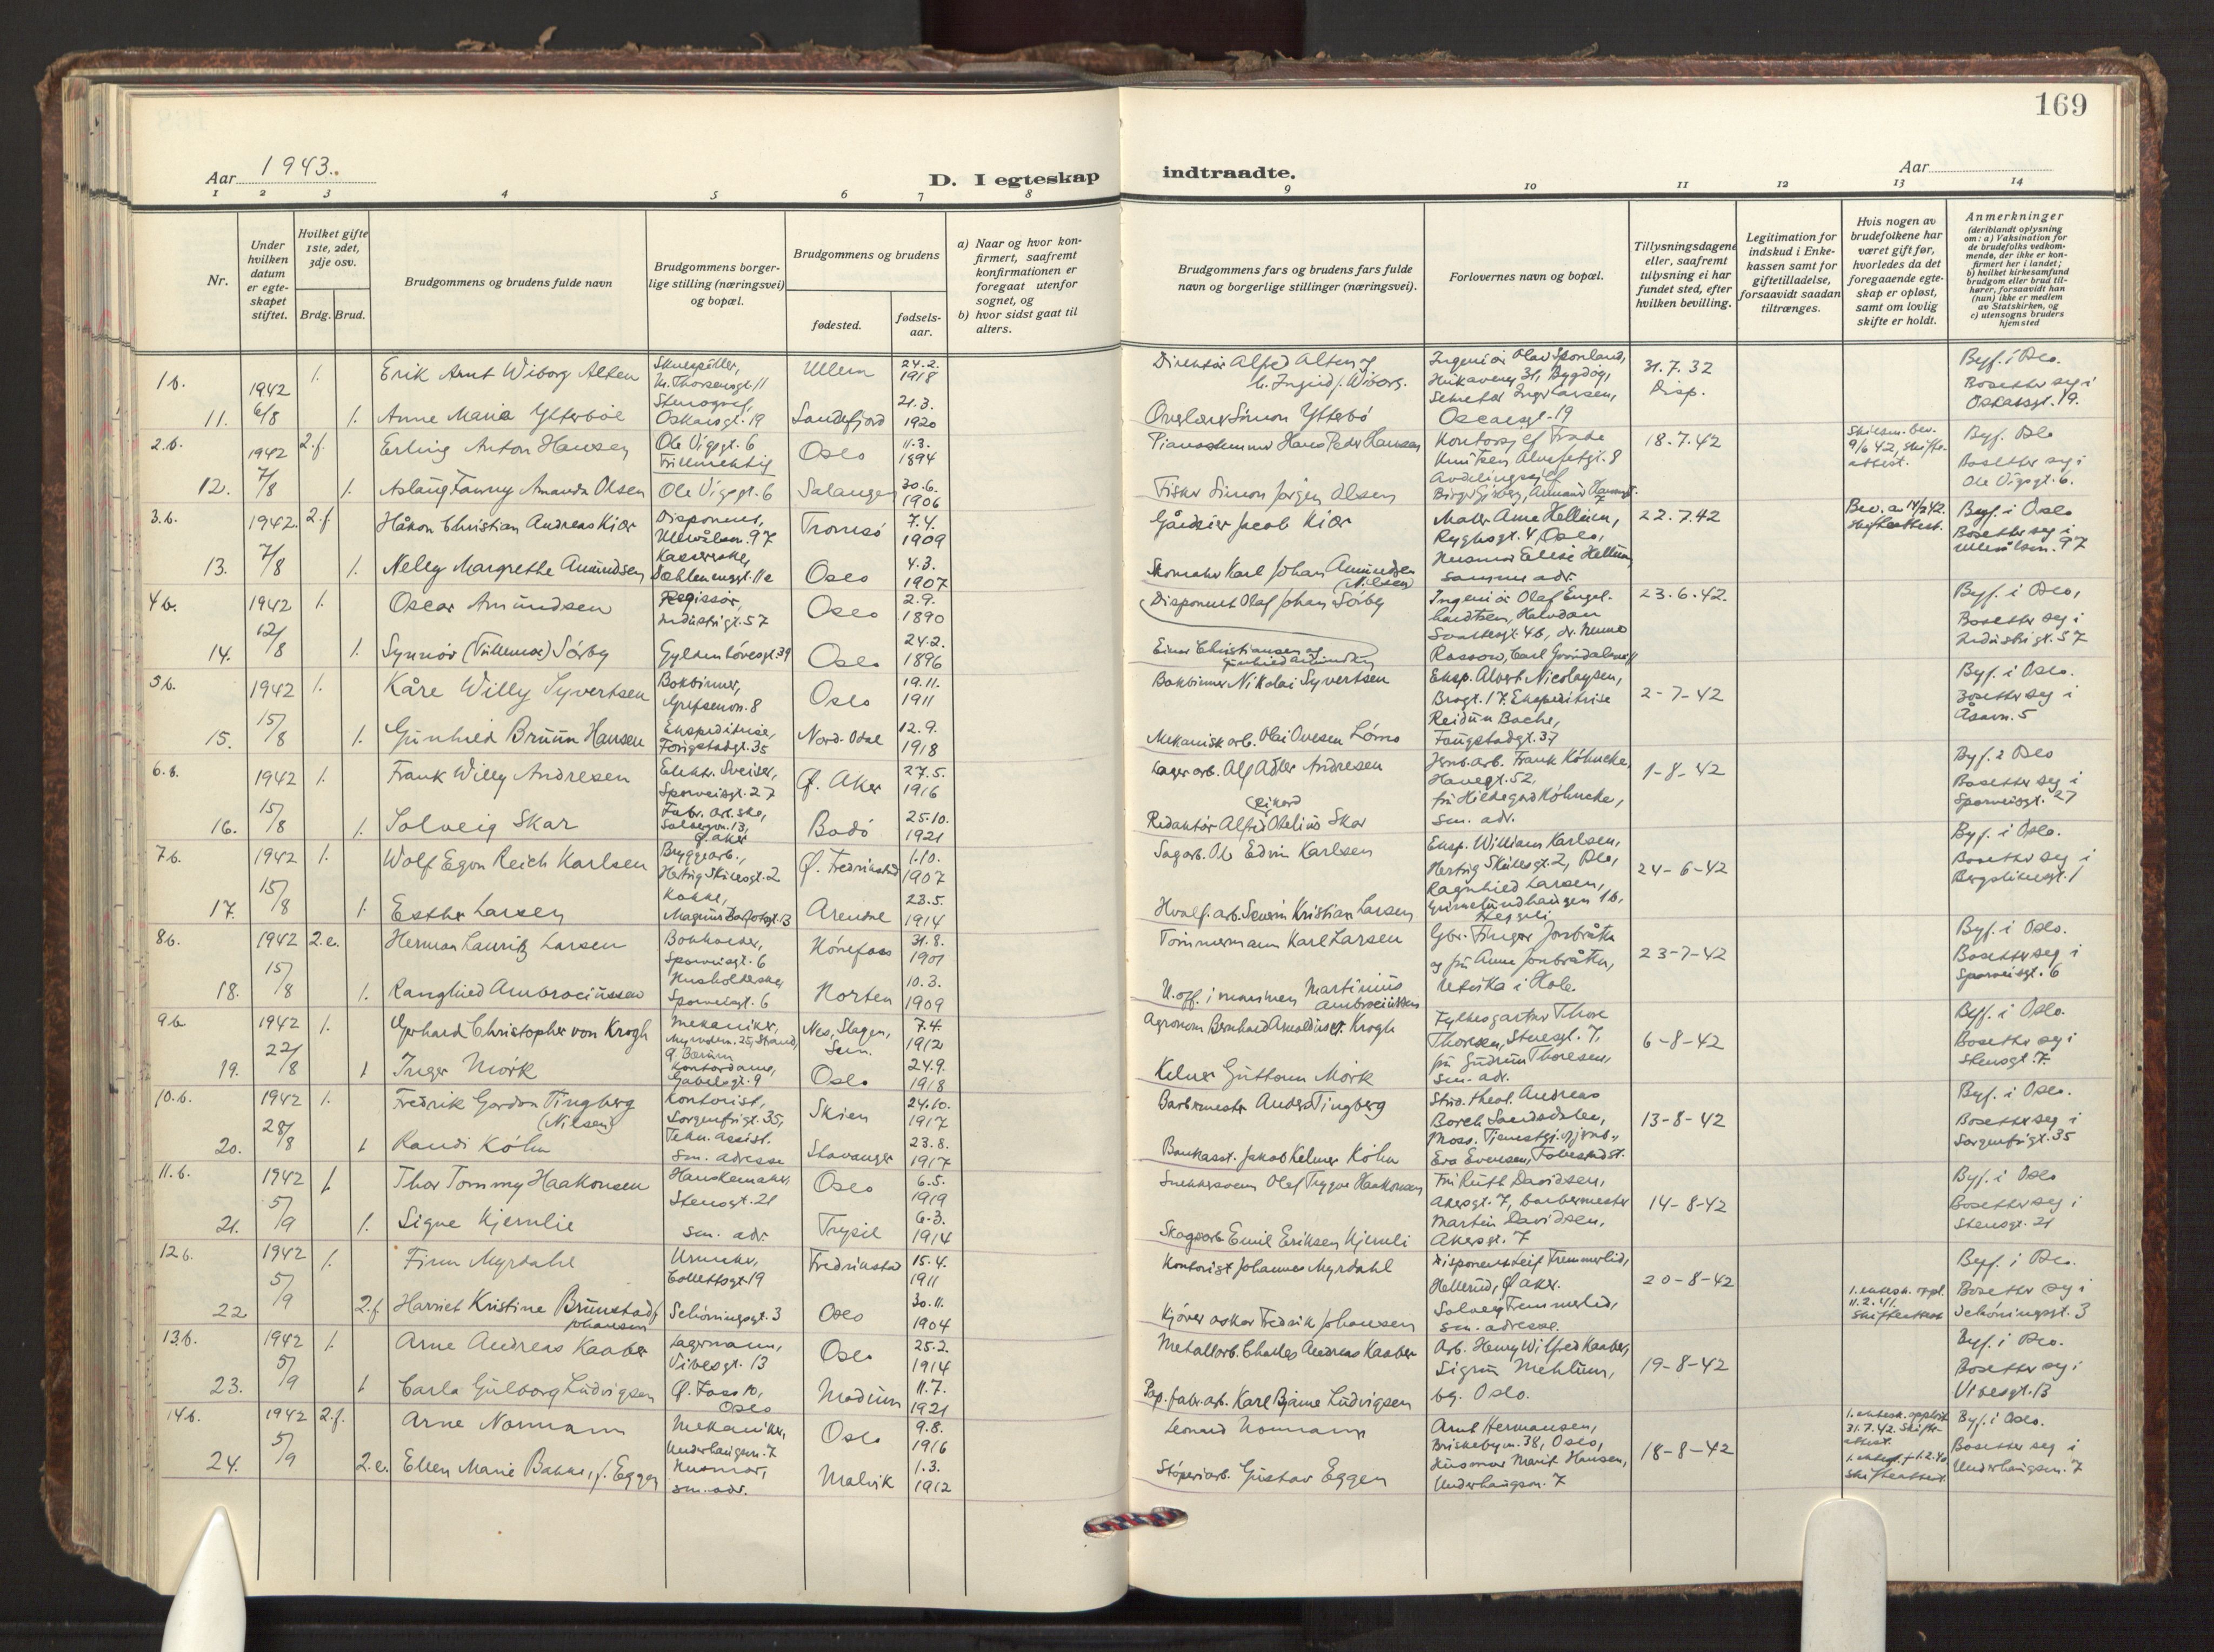 169
Aar 1943.
D. I egteskap indtraadte.
Aar
1 2 3 4 5 6 7 8 9 10 11 12 13 14
Nr.
Under hvilken datum er egte-skapet stiftet.
Hvilket gifte 1ste, 2det, 3dje osv.
Brdg. Brud.
Brudgommens og brudens fulde navn
Brudgommens borger-lige stilling (næringsvei) og bopæl.
Brudgommens og brudens
fødested.
fødsels-aar.
a) Naar og hvor kon-firmert, saafremt konfirmationen er foregaat utenfor sognet, og
b) hvor sidst gaat til alters.
Brudgommens fars og brudens fars fulde navn og borgerlige stillinger (næringsvei).
Forlovernes navn og bopæl.
Tillysningsdagene eller, saafremt tillysning ei har fundet sted, efter hvilken bevilling.
Legitimation for indskud i Enke-kassen samt for giftetilladelse, forsaavidt saadan tiltrænges.
Hvis nogen av brudefolkene har været gift før, hvorledes da det foregaaende egte-skap er opløst, samt om lovlig skifte er holdt.
Anmerkninger (deriblandt oplysning om: a) Vaksination for de brudefolks vedkom-mende, der ikke er kon-firmert her i landet; b) hvilket kirkesamfund brudgom eller brud til-hører, forsaavidt han (hun) ikke er medlem av Statskirken, og c) utensogns bruders hjemsted
1b. 1942 6/8 1. Erik Arnt Wiborg Alten Skuespiller, M. Thorsensgt. 11 Ullern 24.2. 1918 Direktør Alfred Alten og h. Ingrid f. Wiborg. Ingeniør Olav Sponland, Hukaveny 31, Bygdøy, 31.7.32 Disp. Byf. i Oslo. Bosetter seg i Oskarsgt. 19.
11. 1. Anne Maria Ytterböe Stenograf, Oskarsgt. 19 Sandefjord 21.3. 1920 Simon Ytterbö Oscarsgt. 19
2.b. 1942 7/8 2.f. Erling Anton Hansen Ole Vigsgt. 6 Fullmektig Oslo 11.3. 1894 Pianostemmer Hans Peder Hansen 18.7.42 Skilsm. bev. 9/6 42, skifte-attest. Byf. Oslo Bosetter seg i Ole Vigsgt. 6.
12. 1. Aslaug Fanny Amanda Olsen Ole Vigsgt. 6 Salangen 30.6. 1906 Fisker Simon Jørgen Olsen
3.b. 1942. 7/8 2.f. Håkon Christian Andreas Kiær Disponent, Ullevålsv. 97 Tromsö 7.4. 1909 Gårdeier Jacob Kiær Maler Arne Hellum, Ryghsgt. 4, Oslo, 22.7.42 Skifteattest. Byf. i Oslo Bosetter seg i Ullevålsv. 97
13. 1. Nelly Margrethe Amundsen Kassererske, Dahlenengt. 11a Oslo 4.3. 1907 Skomaker Karl Johan Amundsen (Nilsen) Husmor Elise Hellum, samme adr.
4b. 1942 12/8 1. Oscar Amundsen Regissør, Industrigt. 57 Oslo 2.9. 1890 Disponent Olaf Johan Sörby Ingeniør Olaf Engel-hardtsen, Halvdan Svartesgt. 46, 23.6.42. Byf. i Oslo, Bosetter seg i Industrigt. 57
14. 1. Synnör (Tullemor) Sörby Gyldenlövesgt. 39 Oslo 24.2. 1896 Einar Christiansen og
5b. 1942 15/8 1. Kåre Willy Syvertsen Bokbinner, Grefsenvn. 8 Oslo 19.11. 1911 Bokbinner Nikolai Syvertsen Eksp. Albert Nicolaysen, Brogt. 17. Ekspeditrise 2-7-42 Byf. i Oslo. Bosetter seg i Åsavn. 5
15. 1. Gunhild Bruun Hansen Ekspeditrise, Fougstadgt. 35 Nord-Odal 12.9. 1918 Mekanisk arb. Olai Ovesen Lömo Reidun Bache, Fougstadgt. 37
6.b. 1942 15/8 1. Frank Willy Andresen Elektr. Sveiser, Sporveisgt. 27 Ø. Aker 27.5. 1916 Lagerarb. Alf Adler Andresen Jernb. arb. Frank Köhncke, Hauegt. 52, 1-8-42 Byf. i Oslo Bosetter seg i Sporveisgt. 27
16. 1. Solveig Skar Fabr. arb.ske, Solbergvn. 13, Ø. Aker Bodö 25.10. 1921 Redaktör Alfred Obelius Skar fru Hildegard Köhncke, sm. adr.
7b. 1942 15/8 1. Wolf Egon Reich Karlsen Bryggearb., Hertug Skulesgt. 2 Ø. Fredrikstad 1.10. 1907 Sagarb. Ole Edvin Karlsen Eksp. William Karlsen, Hertug Skulesgt. 2, Oslo, 24-6-42 Byf. i Oslo. Bosetter seg i Bergsliensgt. 1
17. 1. Esther Larsen Kokke, Magnus Barfotsgt. 13 Arendal 23.5. 1914 Hvalf. arb. Severin Kristian Larsen Ragnhild Larsen, Grimelundhaugen 16, Heggeli
8b. 1942 15/8 2.e. Herman Lauritz Larsen Bokholder, Sporveisgt. 6 Hönefoss 31.8. 1901 Tömmermann Karl Larsen Gbr. Finger Jonbråten og fru Anne Jonbråten, 23-7-42 Byf. i Oslo. Bosetter seg i Sporveisgt. 6
18. 1. Ranghild Ambrociussen Husholderske, Sporveisgt. 6 Horten 10.3. 1909 U.off. i marinen Martinius Ambrociussen Utvika i Hole
9b 1942 22/8 1. Gerhard Christopher von Krogh Mekaniker, Myrvdn. 25, Strand, Ø. Bærum Nes, Slagen, Sem. 7.4. 1912 Agronom Bernhard Arnoldus v. Krogh Fylkesgartner Thore Thoresen, Stensgt. 7, 6-8-42 Byf. i Oslo. Bosetter seg i Stensgt. 7.
19. 1 Inger Mörk Kontordame, Gabelsgt. 9 Oslo 24.9. 1918 Kelner Guttorm Mörk fru Gudrun Thoresen, sm. adr.
10.b. 1942 28/8 1. Fredrik Gordon Tingberg (Nilsen) Kontorist, Sorgenfrigt. 35, Skien 24.10. 1917 Barbermester Anders Tingberg Stud. theol. Andreas Borch Sandsdalen, Moss. 13-8-42 Byf. i Oslo. Bosetter seg i Sorgenfrigt. 35
20. 1 Randi Köhn Tekn. assist. sm. adresse Stavanger 23.8. 1917 Bankasst. Jakob Kelmer Köhn Eva Evensen,
11.b. 1942 5/9 1. Thor Tommy Haakonsen Hanskemaker, Stensgt. 21 Oslo 6.5. 1919 Snekkersvenn Olaf Trygve Haakonsen Fru Ruth Davidsen, Akersgt. 7, barbermester 14-8-42 Byf. i Oslo Bosetter seg i Stensgt. 21
21. 1. Signe Kjernlie sm. adr. Trysil 6.3. 1914 Skogsarb. Emil Eriksen Kjernli Martin Davidsen, Akersgt. 7
12.b. 1942 5/9 1. Finn Myrdahl Urmaker, Collettsgt. 19 Fredrikstad 15.4. 1911 Kontorist Johannes Myrdahl Disponent Leif Tremmerlid, Hellerud, Ø. Aker. 20-8-42 Byf. i Oslo. Bosetter seg i Schöningsgt. 3
22 2.f. Harriet Kristine Brunstad f. Johansen Schöningsgt. 3 Oslo 30.11. 1904 Kjörer Oskar Fredrik Johansen Solveig Tremmerlid, sm. adresse. 1. ektesk. oppl. 11.2.41. Skifteattest
13.b. 1942 5/9 1. Arne Andreas Kaaber Lagermann, Vibesgt. 13 Oslo 25.2. 1914 Metallarb. Charles Andreas Kaaber Arb. Henry Wilfred Kaaber, 19-8-42 Byf. i Oslo. Bosetter seg i Vibesgt. 13
23. 1 Carla Gulborg Ludvigsen Ø. Foss 10, Oslo Modum 11.7. 1921 Pap. fabr. arb. Karl Bjarne Ludvigsen Sigrun Mehlum, bg. Oslo.
14b. 1942 5/9 2.f. Arne Normann Mekaniker, Underhaugsvn. 7 Oslo 9.8. 1916 Leonard Normann Arnt Hermansen, Briskebyvn. 38, Oslo, 18-8-42 1. ektesk. opplöst 31.7.42. Skifte-attest. Byf. i Oslo. Bosetter seg i Underhaugsvn. 7
24. 2.e. Ellen Marie Bakke, f. Eggen Husmor, sm. adr. Malvik 1.3. 1912 Stöperiarb. Gustav Eggen Husmor Marit Hansen, Underhaugsvn. 7 Skifteattest.